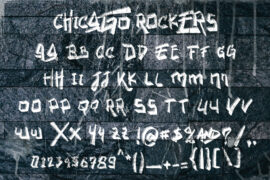 CHICAGO ROCKERS
AA BB CC DD EE FF GG
HH II JJ KK LL MM NN
OO PP QQ RR SS TT UU VV
WW XX YY ZZ !@#$%AND?/
0123456789^*()_—+-={}[]\